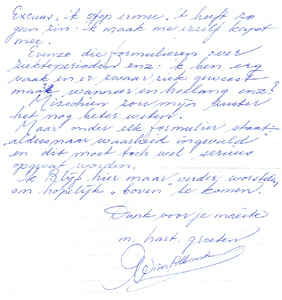 Excuus, ik stop ermee. 't heeft zo
geen zin: ik maak me zelf kapot
mee.
Evenzo die formulieren over
ziekteperioden enz: ik ben erg
vaak en er zwaar ziek geweest
maar wanneer en hoelang enz?
Misschien zou mijn zuster
het nog beter weten.
Maar onder elk formulier staat:
aldus naar waarheid ingevuld
en dit moet toch wel serieus
opgevat worden.
Ik Blijf hier maar verder worstelen
om hopelijk "boven" te komen.
Dank voor je moeite
m. hart. groeten
Wim